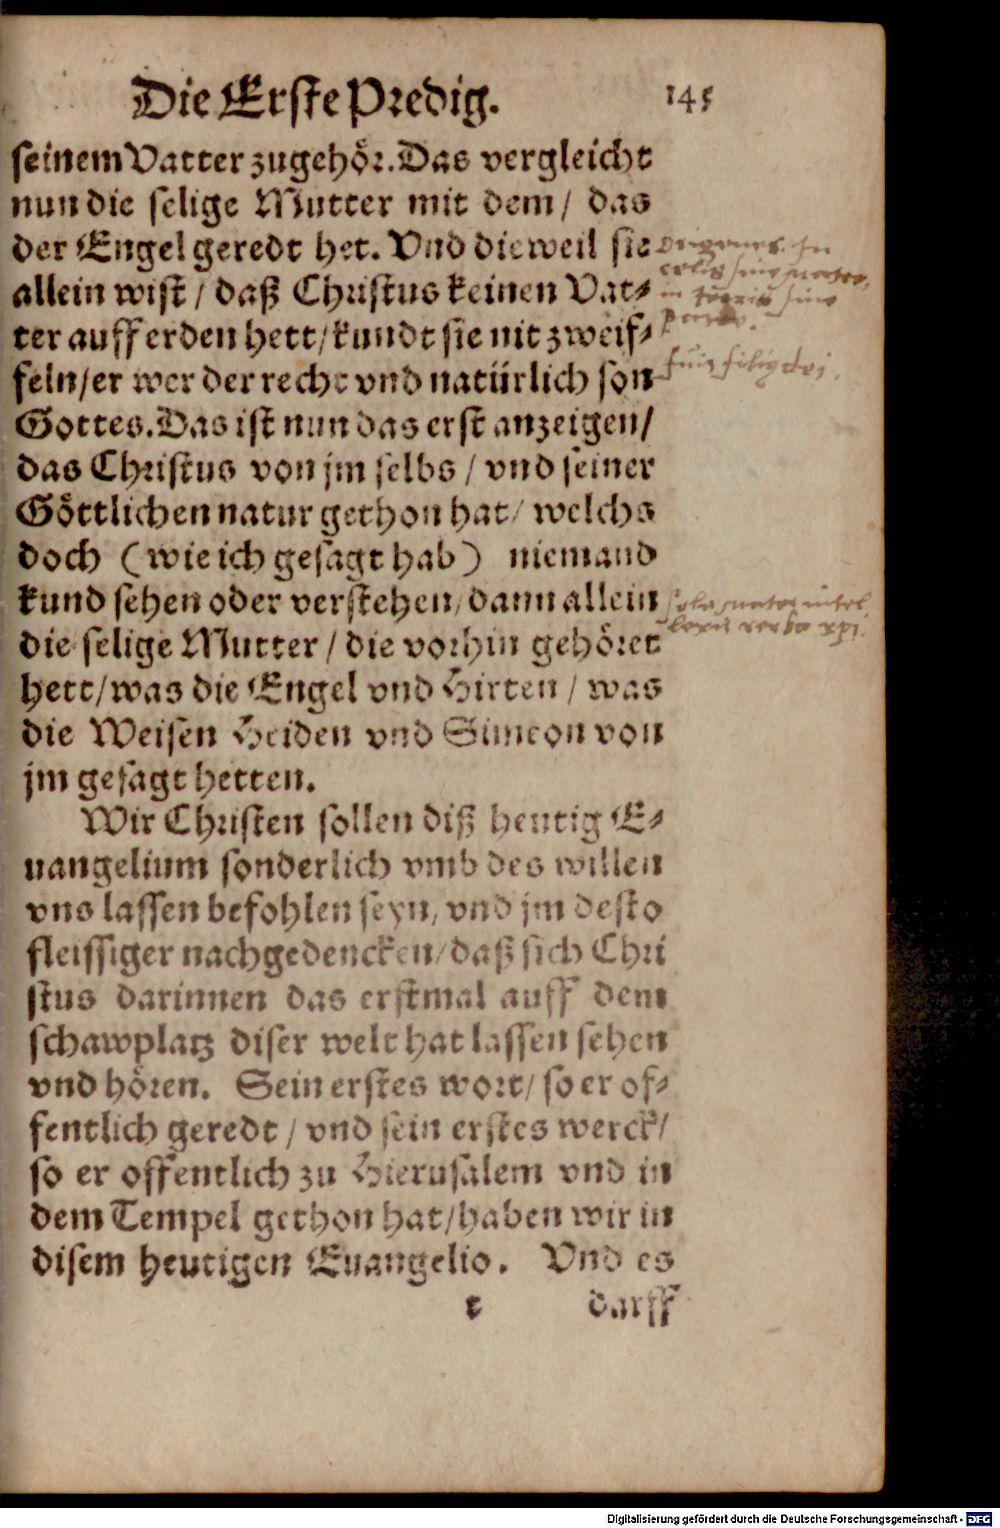 Die Erste Predig. 145
seinem Vatter zugehör. Das vergleicht
nun die selige Mutter mit dem / das
der Engel geredt het. Vnd dieweil sie
allein wist / daß Christus keinen Vat⸗
ter auff erden hett / kundt sie nit zweif⸗
feln / er wer der recht vnd natürlich son
Gottes. Das ist nun das erst anzeigen /
das Christus von jm selbs / vnd seiner
Göttlichen natur gethon hat / welchs
doch (wie ich gesagt hab) niemand
kund sehen oder verstehen / dann allein
die selige Mutter / die vorhin gehöret
hett / was die Engel vnd Hirten / was
die Weisen Heiden vnd Simeon von
jm gesagt hetten.
Wir Christen sollen diß heutig E⸗
uangelium sonderlich vmb des willen
vns lassen befohlen seyn / vnd jm desto
fleissiger nachgedencken / daß sich Chri
stus darinnen das erstmal auff dem
schawplatz diser welt hat lassen sehen
vnd hören. Sein erstes wort / so er of⸗
fentlich geredt / vnd sein erstes werck /
so er offentlich zu Hierusalem vnd in
dem Tempel gethon hat / haben wir in
disem heutigen Euangelio. Vnd es
t darff
Origenes. In
celis sine matre,
in terris sine
patre.
filius dei
sola mater intel
lexit verba xpi.
Digitalisierung gefördert durch die Deutsche Forschungsgemeinschaft - DFG